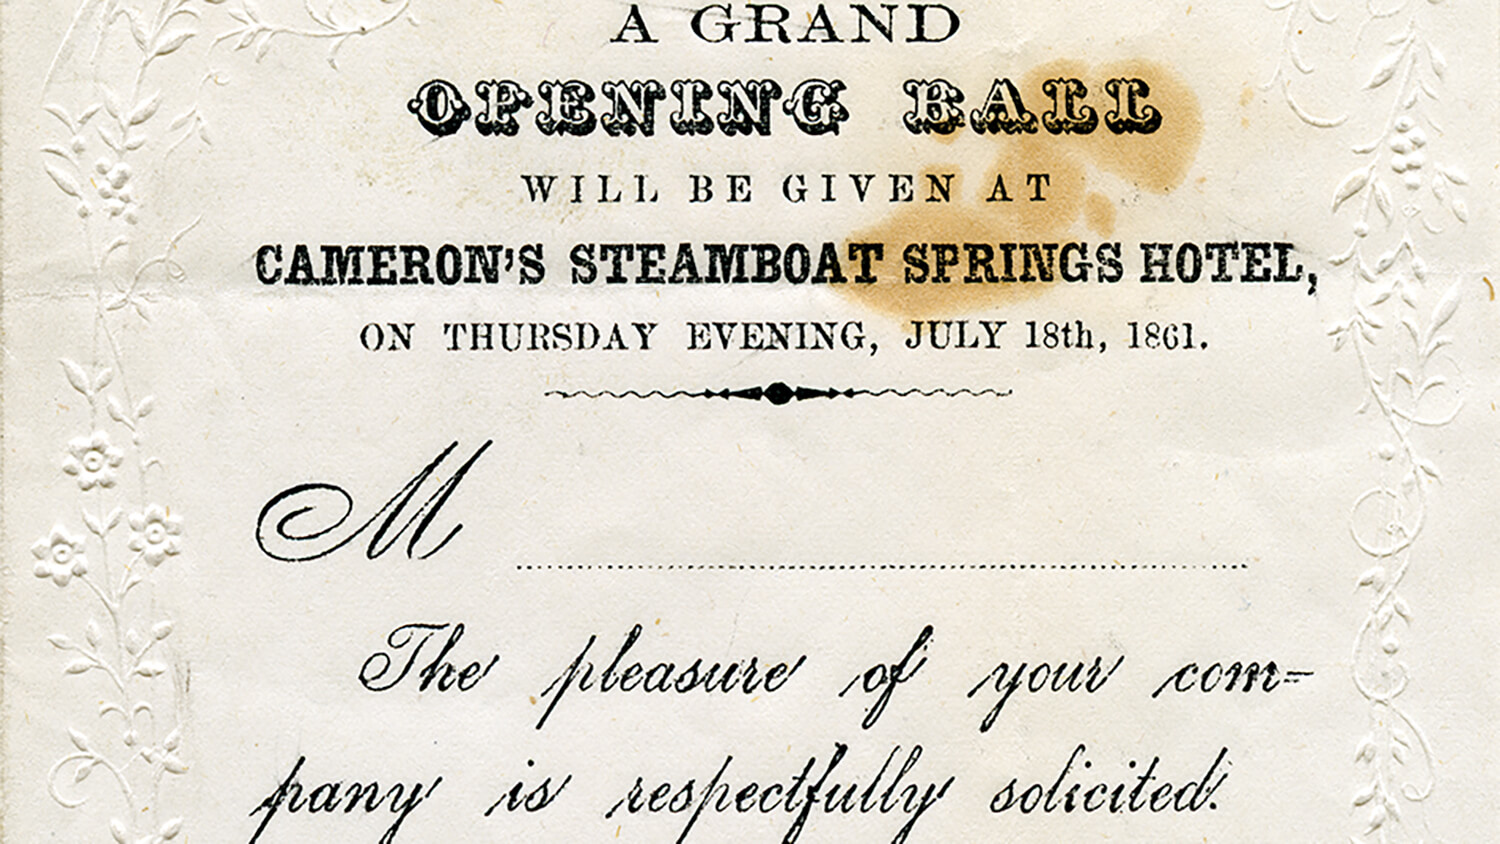 A GRAND
OPENING BALL
WILL BE GIVEN AT
CAMERON'S STEAMBOAT SPRINGS HOTEL,
ON THURSDAY EVENING, JULY 18th, 1861.
M
The pleasure of your com-
pany is respectfully solicited.